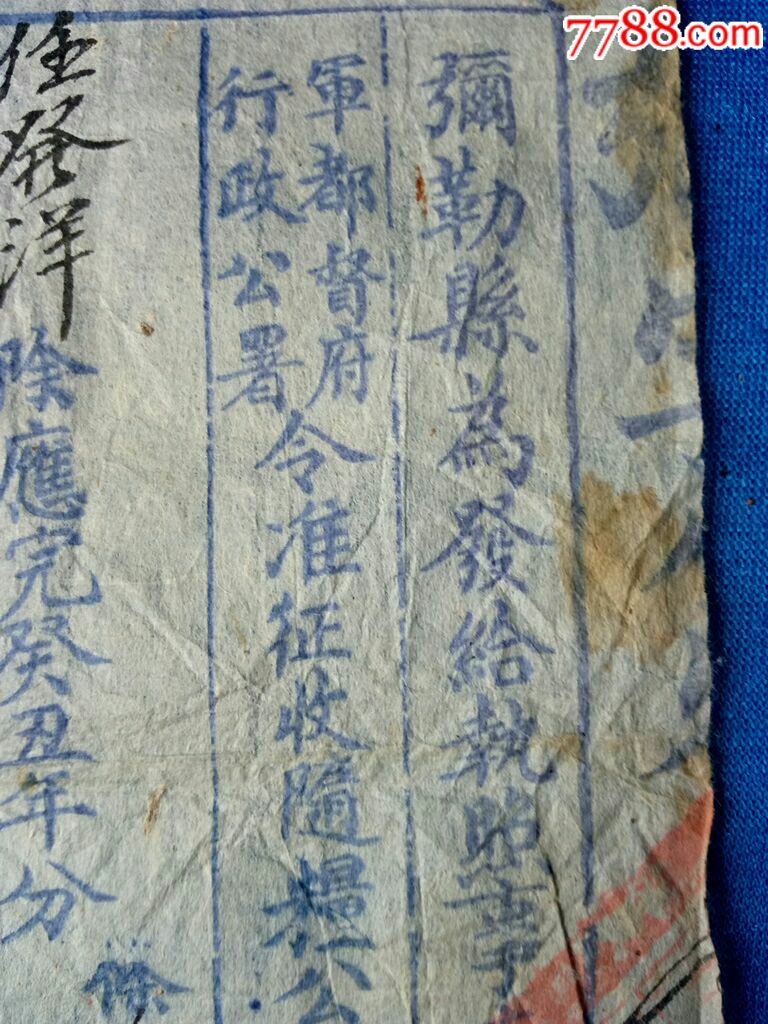 7788.com
彌勒縣為發給執照事
軍都督府
行政公署
令准征收隨糧公
任發洋
除應完癸丑年分
條